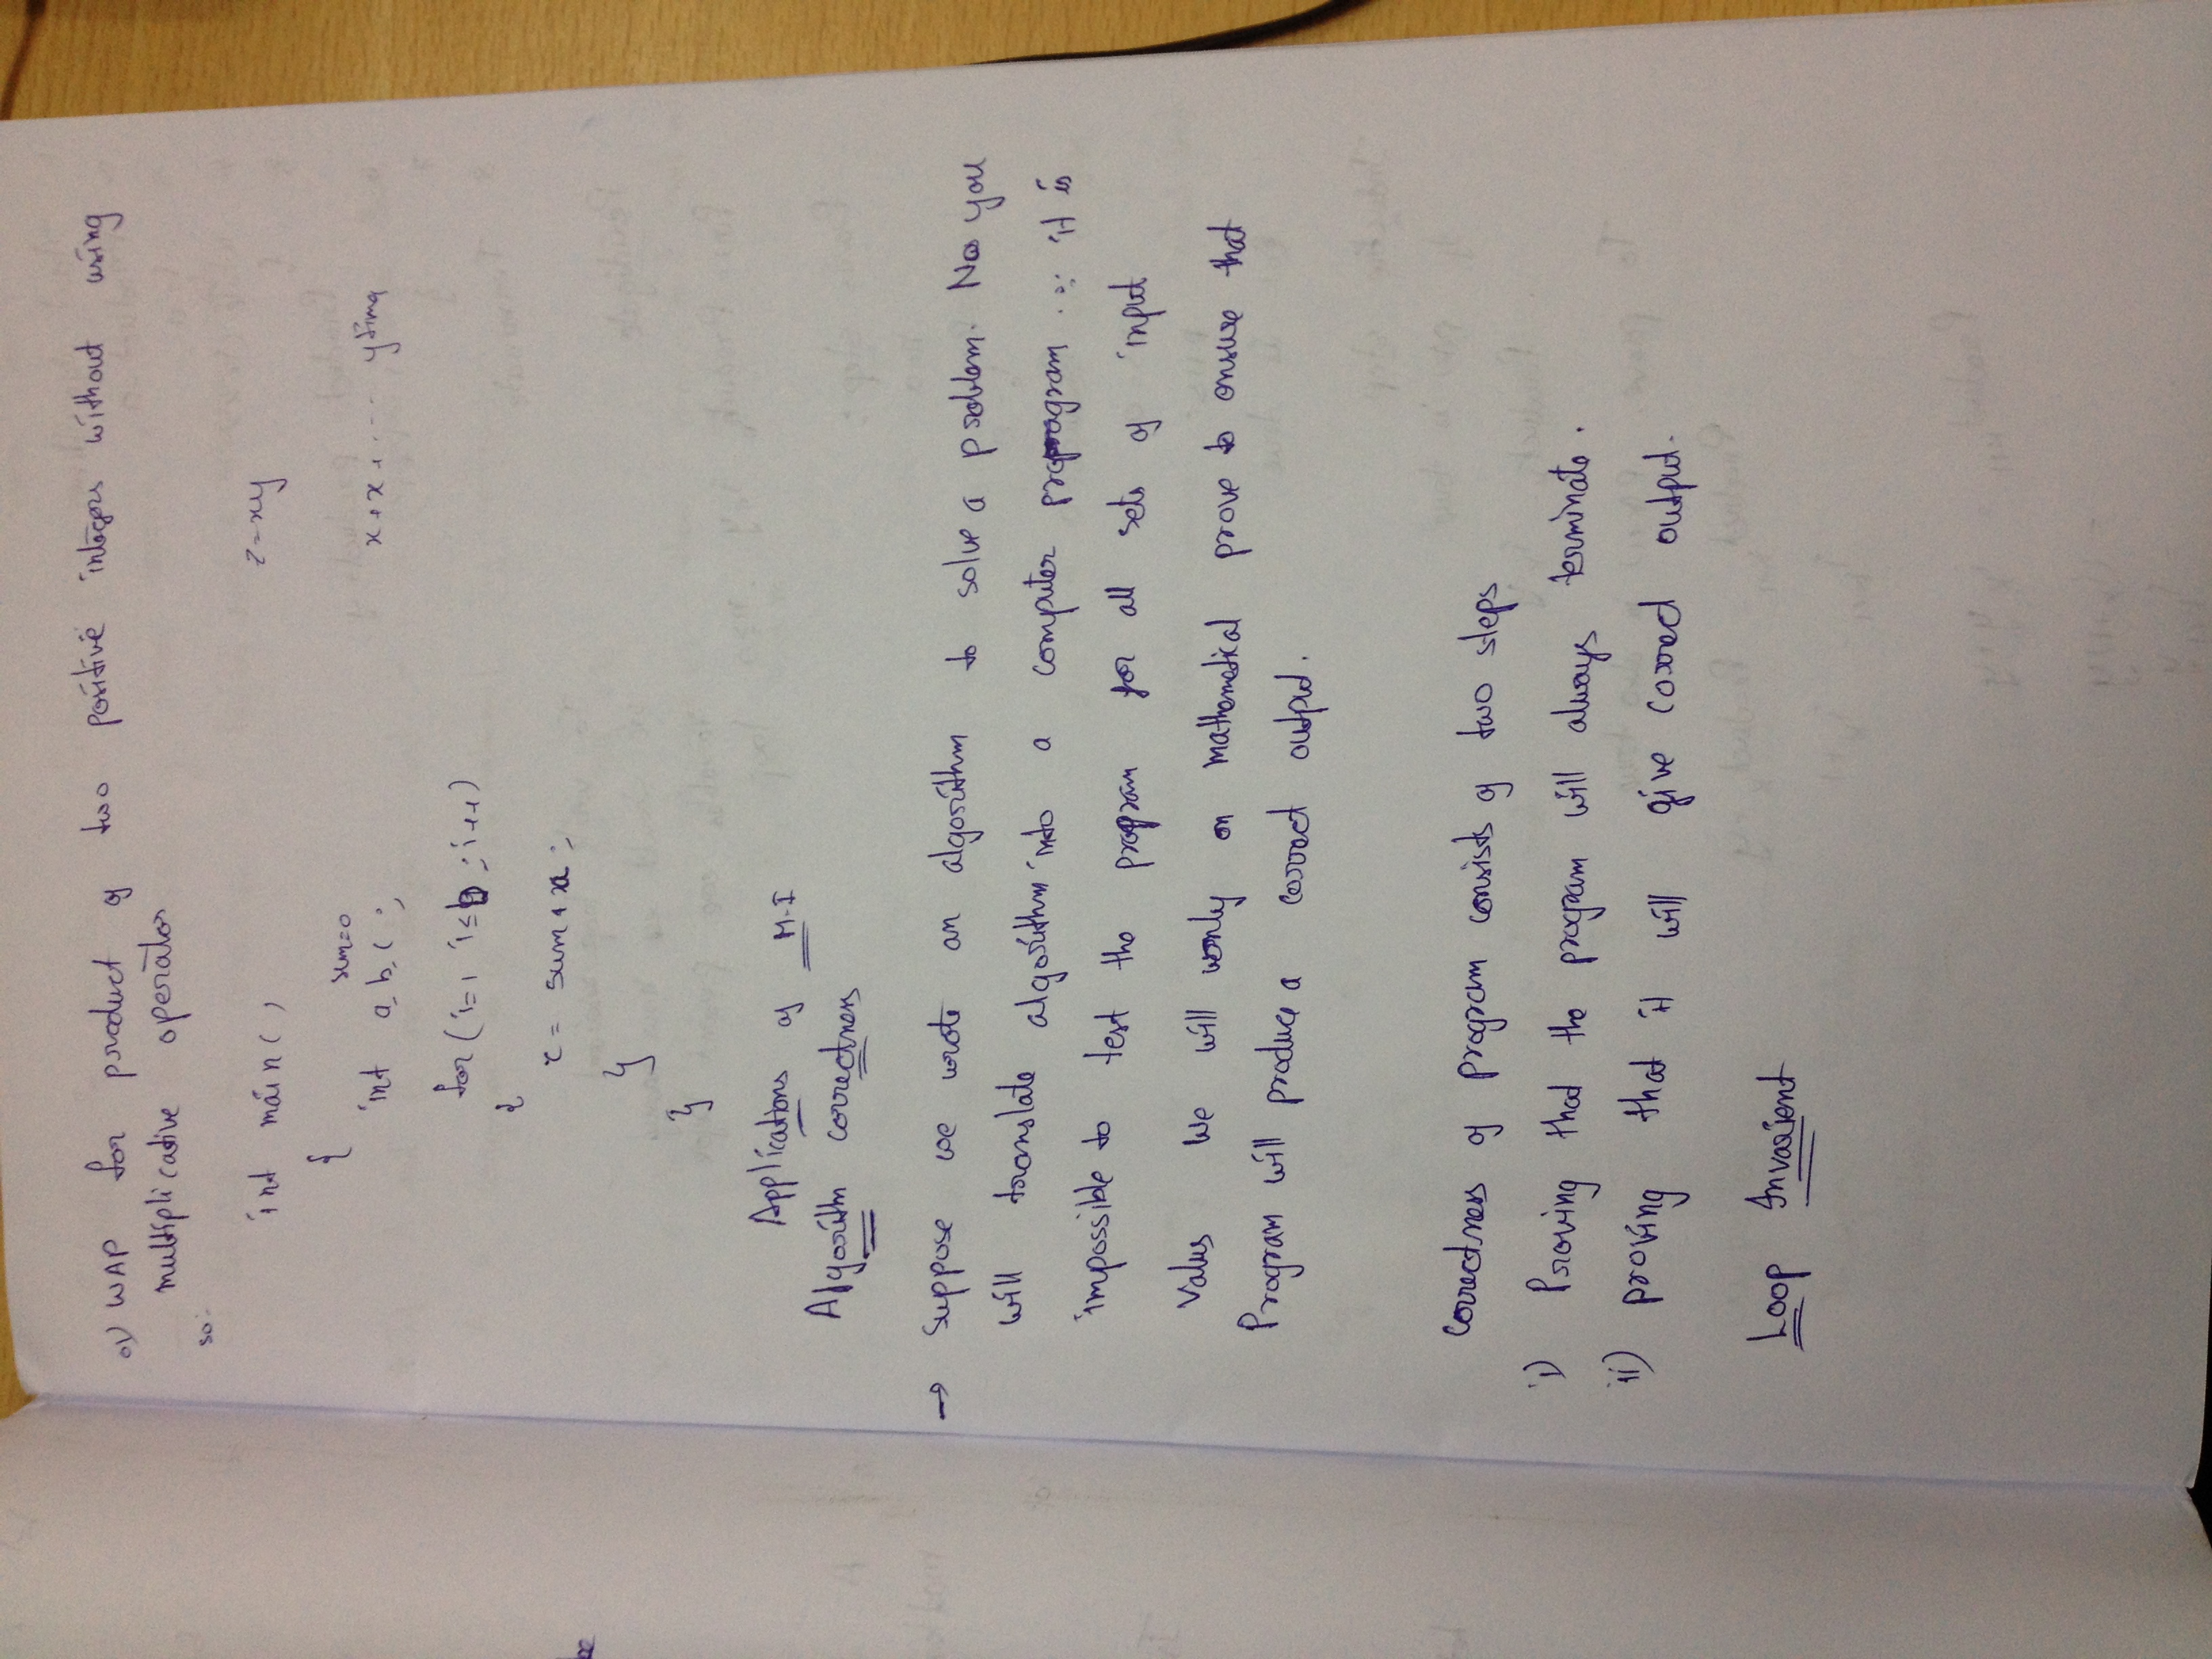 Q1) WAP for product of two positive integers without using
multiplicative operator
so:
int main()
z=xy
{
sum=0
int a, b, c;
x+x+... y time
for (i=1 i≤b ; i++)
{
c= sum + x;
}
}
Applications of M-I
Algorithm correctness
→ Suppose we wrote an algorithm to solve a problem. Now you
will translate algorithm into a computer program. ∵ it is
impossible to test the program for all sets of input
values we will only on mathematical prove to ensure that
Program will produce a correct output.
Correctness of program consists of two steps
i) Proving that the program will always terminate.
ii) proving that it will give correct output.
Loop Invarient